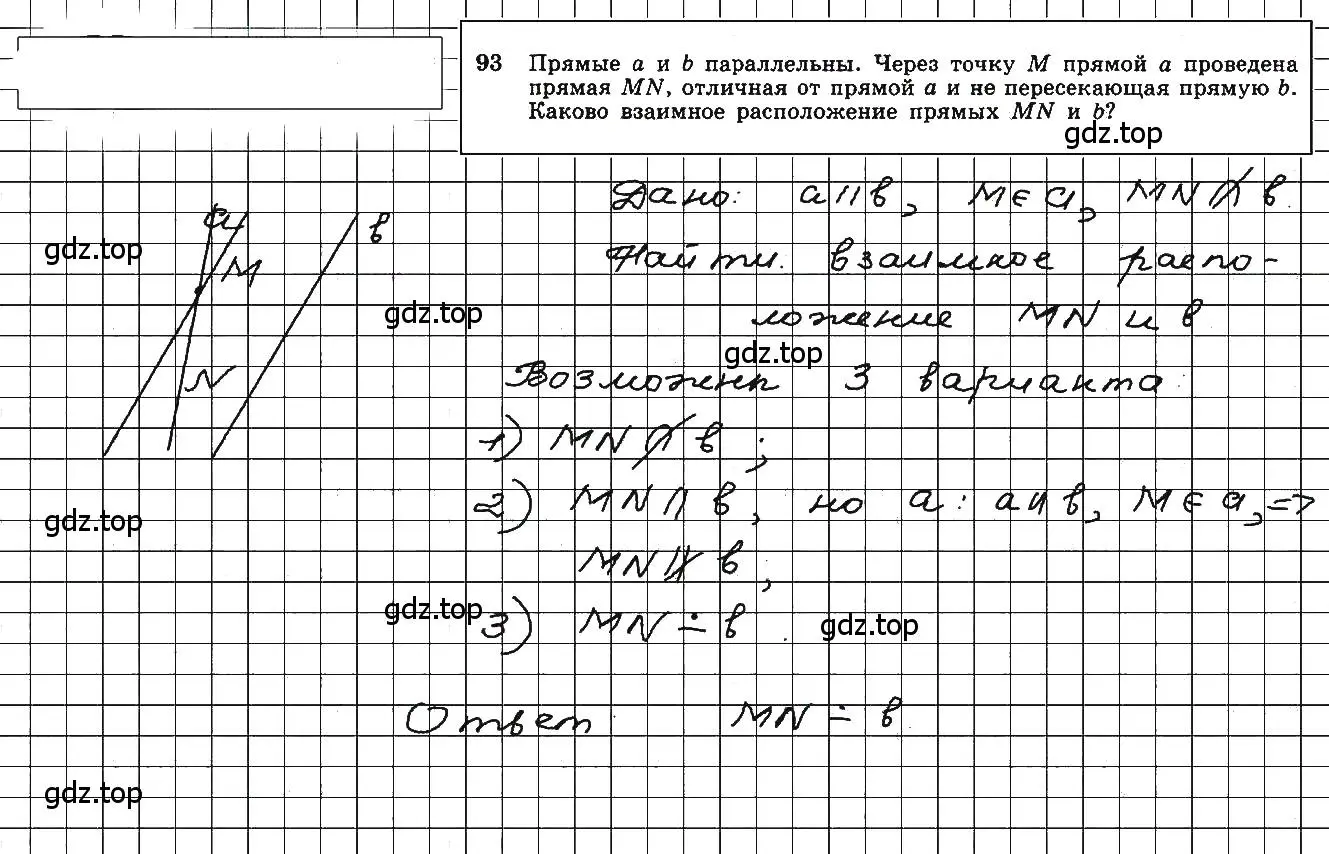 93 Прямые a и b параллельны. Через точку M прямой a проведена
прямая MN, отличная от прямой a и не пересекающая прямую b.
Каково взаимное расположение прямых MN и b?
gdz.top
Дано: a || b, M ∈ a, MN ∩̸ b.
a
b
gdz.top
M
Найти: взаимное распо-
ложение MN и b
gdz.top
gdz.top
N
Возможны 3 варианта:
1) MN ∩̸ b;
2) MN ∩ b, но a: a || b, M ∈ a, =>
gdz.top
MN ∦ b;
gdz.top
3) MN ∸ b.
gdz.top
Ответ MN ∸ b.
gdz.top